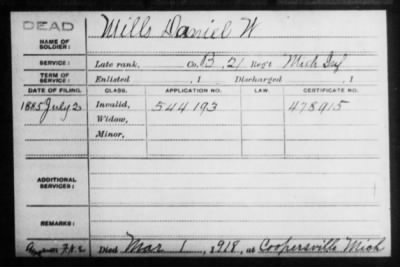 DEAD
NAME OF SOLDIER: Mills Daniel W
SERVICE: Late rank, Co. B, 21 Reg't Mich Inf
TERM OF SERVICE: Enlisted , 1 Discharged , 1
DATE OF FILING. CLASS. APPLICATION NO. LAW. CERTIFICATE NO.
1885 July 2 Invalid, 544193 478915
Widow,
Minor,
ADDITIONAL SERVICES:
REMARKS:
Died Mar 1, 1918, at Coopersville Mich